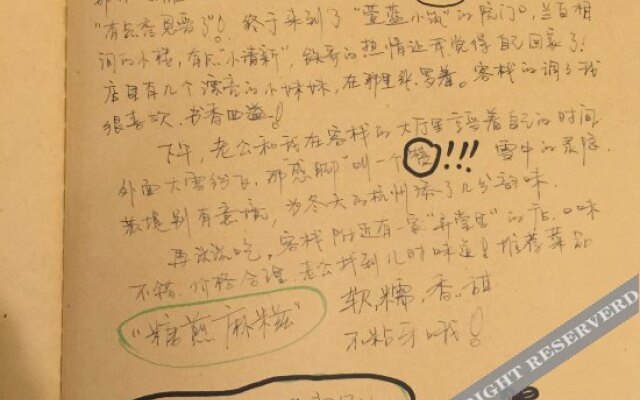 "有点香见爱了"! 终于来到了"萱蓝小筑"的院门。兰白相
间的小楼,有点"小清新",钱哥的热情让我觉得自己回家了!
店里有几个漂亮的小妹妹,在那里张罗着。客栈的调子我
很喜欢,书香四溢!
下午,老公和我在客栈的大厅里享受着自己的时间,
外面大雪纷飞,那"感脚"叫一个 !!! 雪中的灵隐
景境别有意境,为冬天的杭州添了几分韵味。
再说说吃,客栈附近有一家"弄堂里"的店,口味
不错,价格合理,老公找到儿时味道!推荐菜品
"糖煎麻糍"
软,糯,香,甜
不粘牙哦!
RIGHT RESERVERD